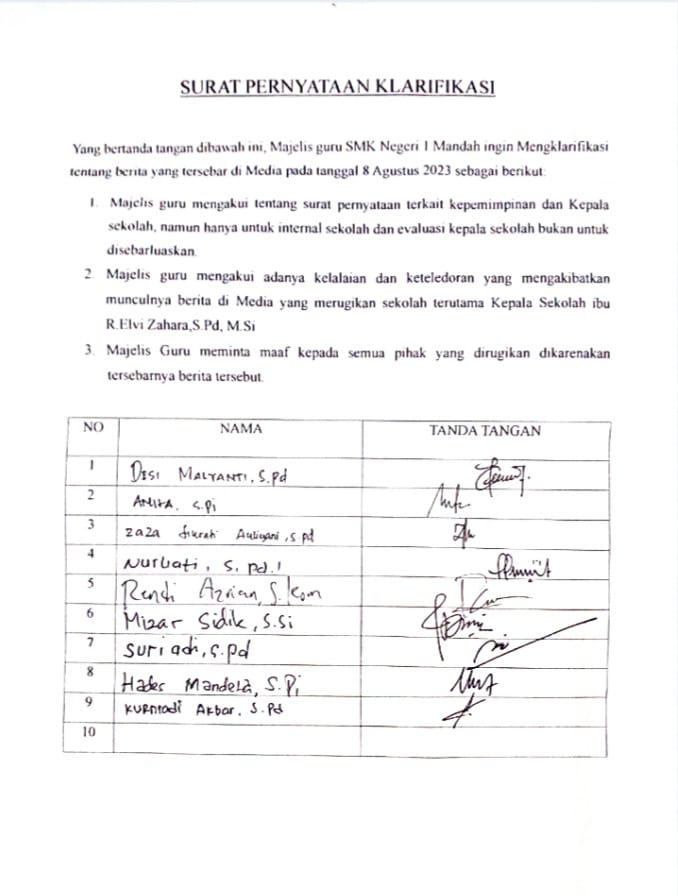 SURAT PERNYATAAN KLARIFIKASI
Yang bertanda tangan dibawah ini, Majelis guru SMK Negeri 1 Mandah ingin Mengklarifikasi
tentang berita yang tersebar di Media pada tanggal 8 Agustus 2023 sebagai berikut:
1. Majelis guru mengakui tentang surat pernyataan terkait kepemimpinan dan Kepala
sekolah, namun hanya untuk internal sekolah dan evaluasi kepala sekolah bukan untuk
disebarluaskan.
2. Majelis guru mengakui adanya kelalaian dan keteledoran yang mengakibatkan
munculnya berita di Media yang merugikan sekolah terutama Kepala Sekolah ibu
R.Elvi Zahara,S.Pd, M.Si
3. Majelis Guru meminta maaf kepada semua pihak yang dirugikan dikarenakan
tersebarnya berita tersebut.
NO NAMA TANDA TANGAN
1 DESI MALYANTI, S.Pd
2 ANITA. S.Pi
3 zaza Auliyani, S Pd
4 Nurbati, S. Pd.I
5 Rendi Azrian, S.Kom
6 Mizar Sidik, S.Si
7 Suriadi, S.pd
8 Hades Mandela, S.Pi
9 KURNIADI AKbar. S.Pd
10